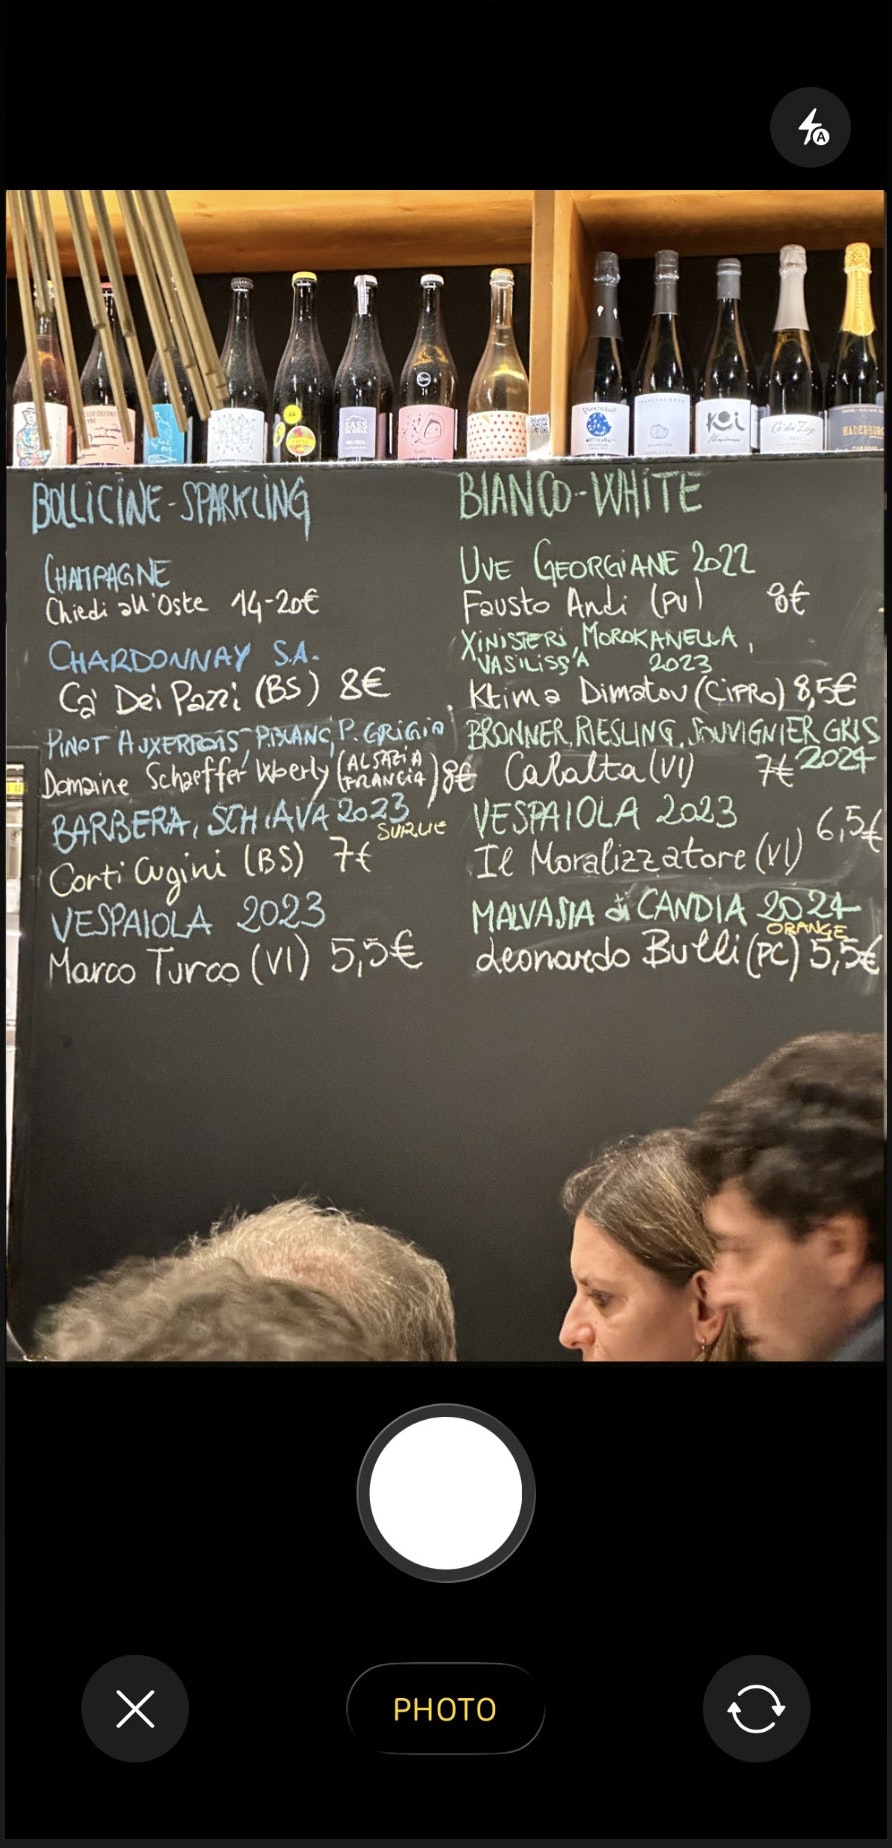 BOLLICINE-SPARKLING
CHAMPAGNE
Chiedi all'Oste 14-20€
CHARDONNAY S.A.
Cà Dei Pazzi (BS) 8€
PINOT AUXERROIS, P.BIANC, P. GRIGIO
Domaine Schaeffer Woerly (ALSAZIA FRANCIA) 8€
BARBERA, SCHIAVA 2023
SURLIE
Corti Cugini (BS) 7€
VESPAIOLA 2023
Marco Turco (VI) 5,5€
BIANCO-WHITE
UVE GEORGIANE 2022
Fausto Andi (PV) 8€
XINISTERI, MOROKANELLA,
VASILISS'A 2023
Ktima Dimatou (CIPRO) 8,5€
BRONNER, RIESLING, SOUVIGNIER GRIS
2024
Calalta (VI) 7€
VESPAIOLA 2023
Il Moralizzatore (VI) 6,5€
MALVASIA di CANDIA 2024
ORANGE
Leonardo Bulli (PC) 5,5€
SASS
Koi
PHOTO